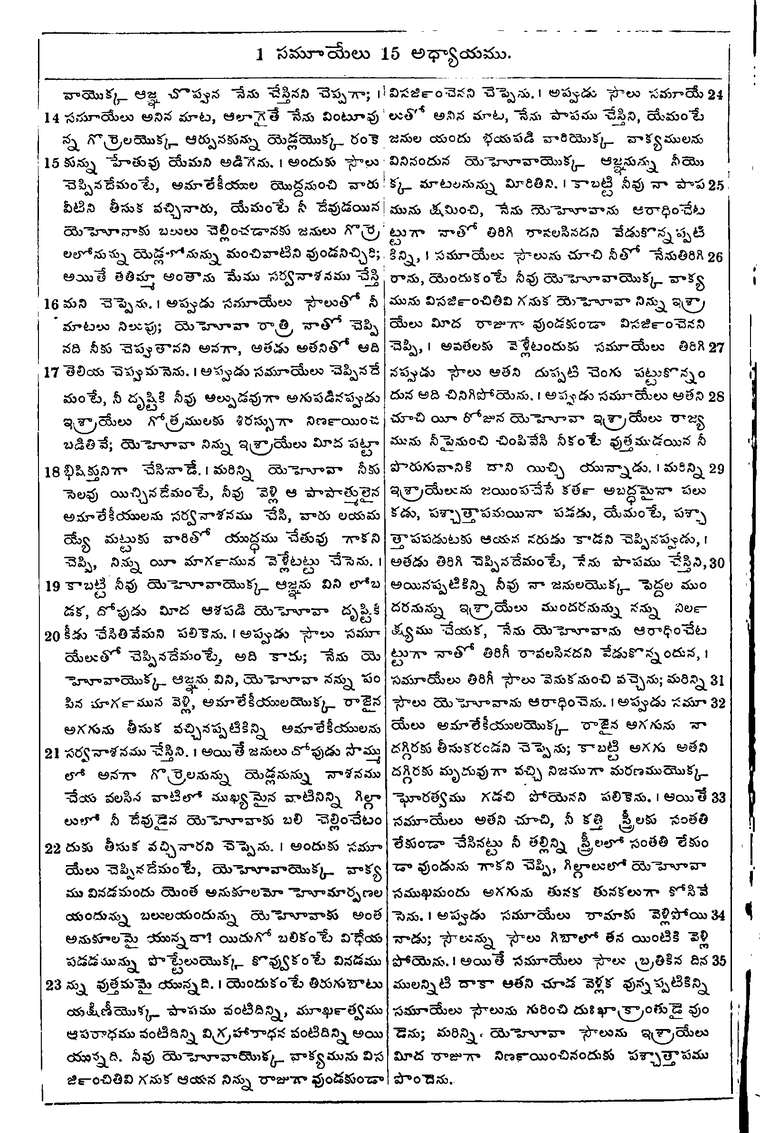 1 సమూయేలు 15 అధ్యాయము.
వాయొక్క ఆజ్ఞ చొప్పున నేను చేస్తినని చెప్పగా; ।
14 సమూయేలు అనిన మాట, ఆలాగైతే నేను వింటూవు
న్న గొర్రెలయొక్క ఆర్పునకున్ను యెడ్లయొక్క రంకె
15 కున్ను హేతువు యేమని అడిగెను. । అందుకు సౌలు
చెప్పినదేమంటే, అమాలేకీయుల యొద్దనుంచి వారు
వీటిని తీసుక వచ్చినారు, యేమంటే నీ దేవుడయిన
యెహోవాకు బలులు చెల్లించడానకు జనులు గొర్రె
లలోనున్ను యెడ్లలోనున్ను మంచివాటిని వుండనిచ్చిరి;
అయితే తతిమ్మా అంతాను మేము సర్వనాశనము చేస్తి
16 మని చెప్పెను. । అప్పుడు సమూయేలు సౌలుతో నీ
మాటలు నిలుపు; యెహోవా రాత్రి నాతో చెప్పి
నది నీకు చెప్పుతానని అనగా, అతడు అతనితో అది
17 తెలియ చెప్పుమనెను. । అప్పుడు సమూయేలు చెప్పినదే
మంటే, నీ దృష్టికి నీవు ఆల్పుడవుగా అగుపడినప్పుడు
ఇశ్రాయేలు గోత్రములకు శిరస్సుగా నిర్ణయించ
బడితివే; యెహోవా నిన్ను ఇశ్రాయేలు మీద పట్టా
18 భిషిక్తునిగా చేసినాడే. । మరిన్ని యెహోవా నీకు
సెలవు యిచ్చినదేమంటే, నీవు వెళ్లి ఆ పాపాత్ములైన
అమాలేకీయులను సర్వనాశనము చేసి, వారు లయమ
య్యే మట్టుకు వారితో యుద్ధము చేతువు గాకని
చెప్పి, నిన్ను యీ మార్గమున వెళ్లేటట్టు చేసెను. ।
19 కాబట్టి నీవు యెహోవాయొక్క ఆజ్ఞను విని లోబ
డక, దోపుడు మీద ఆశపడి యెహోవా దృష్టికి
20 కీడు చేసితివేమని పలికెను. । అప్పుడు సౌలు సమూ
యేలుతో చెప్పినదేమంటే, అది కాదు; నేను యె
హోవాయొక్క ఆజ్ఞను విని, యెహోవా నన్ను పం
పిన మార్గమున వెళ్లి, అమాలేకీయులయొక్క రాజైన
అగగును తీసుక వచ్చినప్పటికిన్ని అమాలేకీయులను
21 సర్వనాశనము చేస్తిని. । అయితే జనులు దోపుడు సొమ్ము
లో అనగా గొర్రెలనున్ను యెడ్లనున్ను నాశనము
చేయ వలసిన వాటిలో ముఖ్యమైన వాటినిన్ని గిల్గా
లులో నీ దేవుడైన యెహోవాకు బలి చెల్లించేటం
22 దుకు తీసుక వచ్చినారని చెప్పెను. । అందుకు సమూ
యేలు చెప్పినదేమంటే, యెహోవాయొక్క వాక్య
ము వినడమందు యెంత అనుకూలమో హోమార్పణల
యందున్ను బలులయందున్ను యెహోవాకు అంత
అనుకూలమై యున్నదా? యిదుగో బలికంటే విధేయ
పడడమున్ను పొట్టేలుయొక్క కొవ్వుకంటే వినడము
23 న్ను వుత్తమమై యున్నది. । యెందుకంటే తిరుగుబాటు
యక్షిణీయొక్క పాపము వంటిదిన్ని, మూర్ఖత్వము
ఆపరాధము వంటిదిన్ని విగ్రహారాధన వంటిదిన్ని అయి
యున్నది. నీవు యెహోవాయొక్క వాక్యమును విస
ర్జించితివి గనుక ఆయన నిన్ను రాజుగా వుండకుండా
విసర్జించెనని చెప్పెను. । అప్పుడు సౌలు సమూయే 24
లుతో అనిన మాట, నేను పాపము చేస్తిని, యేమంటే
జనుల యందు భయపడి వారియొక్క వాక్యములను
వినినందున యెహోవాయొక్క ఆజ్ఞనున్ను నీయొ
క్క మాటలనున్ను మీరితిని. । కాబట్టి నీవు నా పాప 25
మును క్షమించి, నేను యెహోవాను ఆరాధించేట
ట్టుగా నాతో తిరిగి రావలసినదని వేడుకొన్నప్పటి
కిన్ని, । సమూయేలు సౌలును చూచి నీతో నేనుతిరిగి 26
రాను, యెందుకంటే నీవు యెహోవాయొక్క వాక్య
మును విసర్జించితివి గనుక యెహోవా నిన్ను ఇశ్రా
యేలు మీద రాజుగా వుండకుండా విసర్జించెనని
చెప్పి, । అవతలకు వెళ్లేటందుకు సమూయేలు తిరిగి 27
నప్పుడు సౌలు ఆతని దుప్పటి చెంగు పట్టుకొన్నం
దున అది చినిగిపోయెను. । అప్పుడు సమూయేలు అతని 28
చూచి యీ రోజున యెహోవా ఇశ్రాయేలు రాజ్య
మును నీపైనుంచి చింపివేసి నీకంటే వుత్తమడయిన నీ
పొరుగువానికి దాని యిచ్చి యున్నాడు. । మరిన్ని 29
ఇశ్రాయేలును జయింపచేసే కర్త అబద్ధమైనా పలు
కడు, పశ్చాత్తాపమయినా పడడు, యేమంటే, పశ్చా
త్తాపపడుటకు ఆయన నరుడు కాడని చెప్పినప్పుడు, ।
అతడు తిరిగి చెప్పినదేమంటే, నేను పాపము చేస్తిని, 30
అయినప్పటికిన్ని నీవు నా జనులయొక్క పెద్దల ముం
దరనున్ను ఇశ్రాయేలు ముందరనున్ను నన్ను నిర్ల
క్ష్యము చేయక, నేను యెహోవాను ఆరాధించేట
ట్టుగా నాతో తిరిగీ రావలసినదని వేడుకొన్నందున, ।
సమూయేలు తిరిగీ సౌలు వెనుకనుంచి వచ్చెను; మరిన్ని 31
సౌలు యెహోవాను ఆరాధించెను. । అప్పుడు సమూ 32
యేలు అమాలేకీయులయొక్క రాజైన అగగును నా
దగ్గిరకు తీసుకరండని చెప్పెను; కాబట్టి అగగు అతని
దగ్గిరకు మృదువుగా వచ్చి నిజముగా మరణముయొక్క
ఘోరత్వము గడచి పోయెనని పలికెను. । అయితే 33
సమూయేలు అతని చూచి, నీ కత్తి స్త్రీలకు సంతతి
లేకుండా చేసినట్టు నీ తల్లిన్ని స్త్రీలలో సంతతి లేకుం
డా వుండును గాకని చెప్పి, గిల్గాలులో యెహోవా
సముఖమందు అగగును తునక తునకలుగా కోసివే
సెను. । అప్పుడు సమూయేలు రామాకు వెళ్లిపోయి 34
నాడు; సౌలున్ను సౌలు గిబాలో తన యింటికి వెళ్లి
పోయెను. । అయితే సమూయేలు సౌలు బ్రతికిన దిన 35
ములన్నిటి దాకా ఆతని చూడ వెళ్లక వున్నప్పటికిన్ని
సమూయేలు సౌలును గురించి దుఃఖాక్రాంతుడై వుం
డెను; మరిన్ని యెహోవా సౌలును ఇశ్రాయేలు
మీద రాజుగా నిర్ణయించినందుకు పశ్చాత్తాపము
పొందెను.